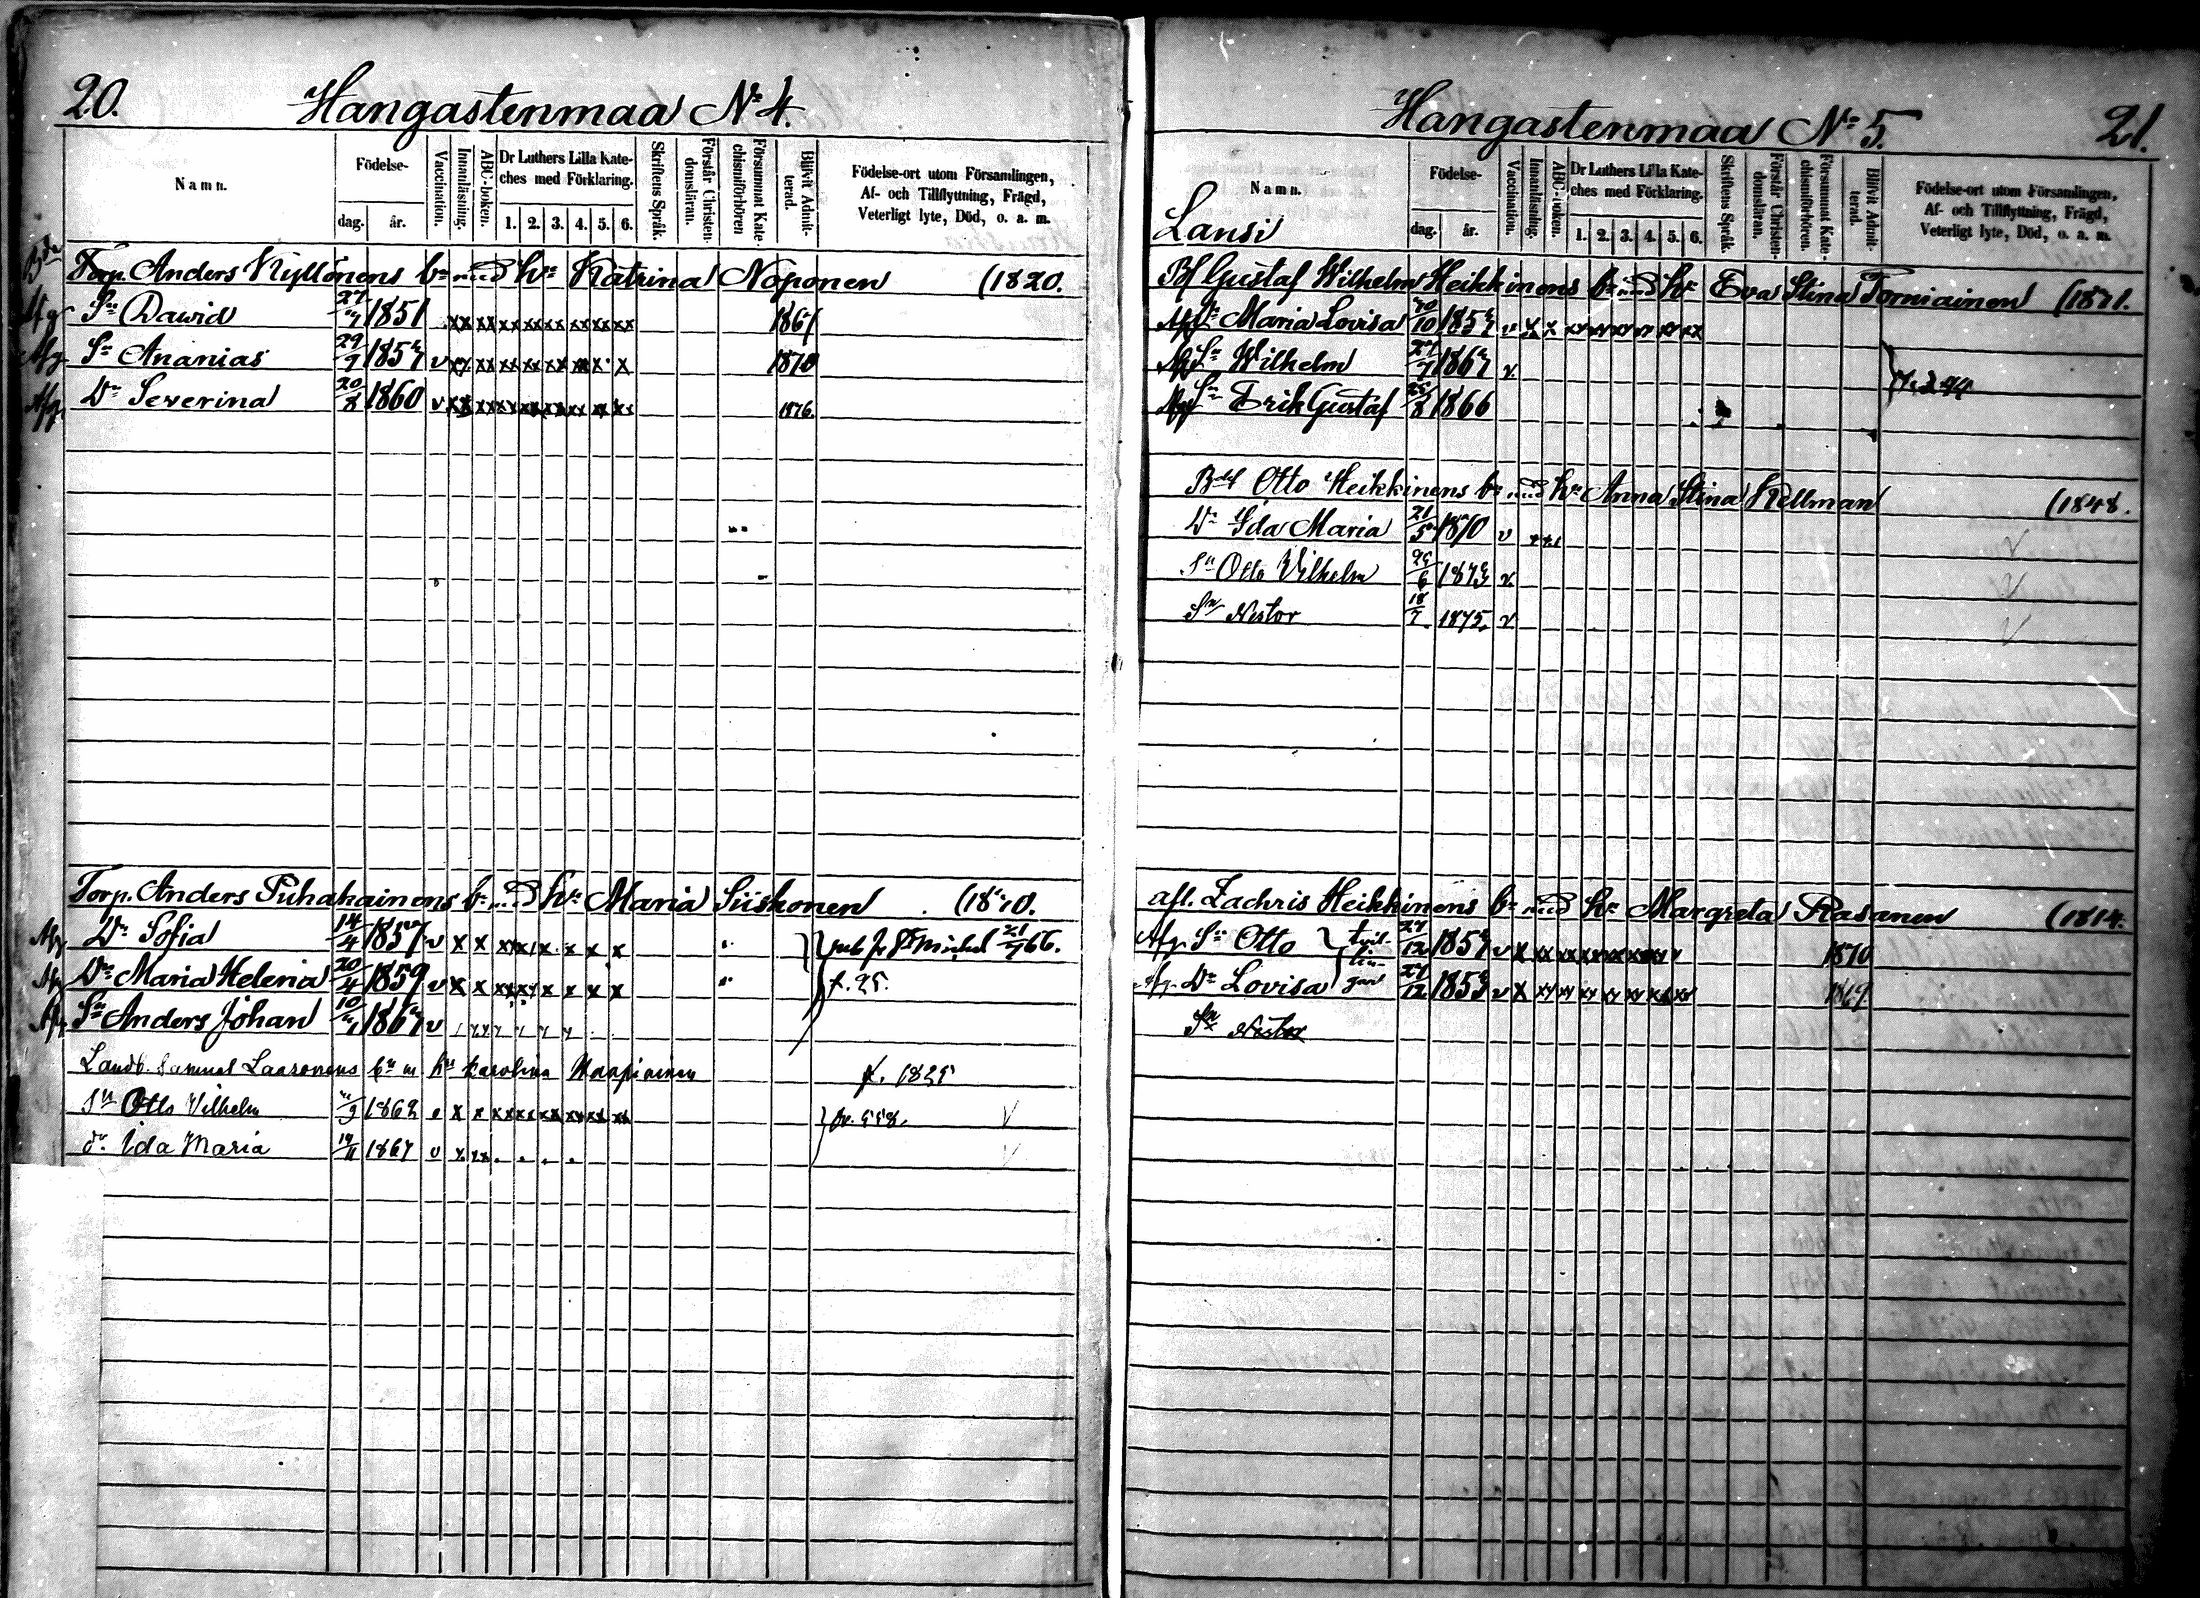 20.
Hangastenmaa No 4.
Namn.
Födelse-
dag.
år.
Vaccination.
Innanläsning.
ABC-boken.
Dr Luthers Lilla Kate-
ches med Förklaring.
1. 2. 3. 4. 5. 6.
Skriftens Språk.
Förstår Christen-
domsläran.
Försummat Kate-
chismiförhören
Blivit Admit-
terad.
Födelse-ort utom Församlingen,
Af- och Tillflyttning, Frägd,
Veterligt lyte, Död, o. a. m.
Torp. Anders Kyllönens bn med hu Katrina Noponen (1820.
Sn Dawid 1851 xx xx xx xx xx xx xx xx
Sn Ananias 29/7 1857 v 1870
Dr Severina 20/8 1860 v 1876
Torp. Anders Pihakainens bn med hu Maria Siiskonen
Afg Dr Sofia 14/4 1857 v x x x x x x Michel 21/7 66.
Afg Dr Maria Helena 20/4 1859 v x x x x x x f. 25.
Afg Sn Anders Johan v
Landb. Samuel Laasonens bn m hu Karolina f. 1825
Sn Otto Vilhelm 1862 x x xx xx xx xx xx xx
dr. Ida Maria 1867 v
21.
Hangastenmaa No 5.
Namn.
Länsi
Födelse-
dag.
år.
Vaccination.
Innanläsning.
ABC-boken.
Dr Luthers Lilla Kate-
ches med Förklaring.
1. 2. 3. 4. 5. 6.
Skriftens Språk.
Förstår Christen-
domsläran.
Försummat Kate-
chismiförhören.
Blivit Admit-
terad.
Födelse-ort utom Församlingen,
Af- och Tillflyttning, Frägd,
Veterligt lyte, Död, o. a. m.
Gustaf Wilhelm Heikkinens bn med hu Eva Stina Torniainen
Dr Maria Lovisa v x x
Sn Wilhelm v
Sn Erik Gustaf 1866
Otto Heikkinens bn med hu Anna Stina Kellman (1848.
Dr Ida Maria 21/5 1870 v
Sn Otto Vilhelm 1873 v
Sn Nestor 18/7 1875. v
afl. Zachris Heikkinens bn med hu Margreta Rasanen (1814.
Afg. Sn Otto tvil- 27/12 v x 1870
lin-
Afg. Dr Lovisa gar 27/12 v x 1869
Sn Nestor